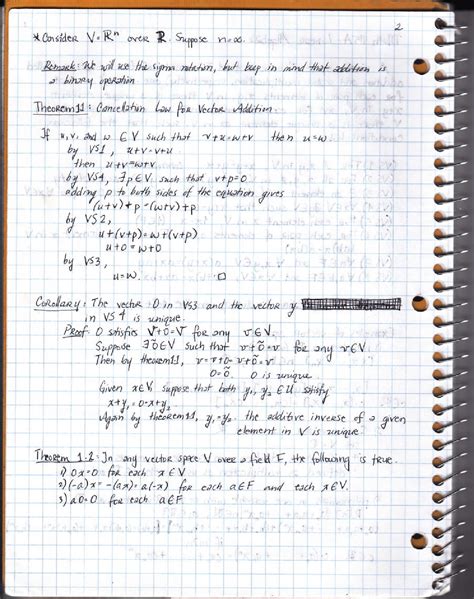 2
* Consider V=ℝⁿ over ℝ. Suppose n=∞.
Remark: We will use the sigma notation, but keep in mind that addition is
a binary operation
Theorem 1.1: Cancellation Law for Vector Addition.
If u,v, and w ∈ V such that v+u=w+v then u=w.
by VS1, u+v=v+u
then u+v=w+v
by VS4, ∃p∈V such that v+p=0
adding p to both sides of the equation gives
(u+v)+p=(w+v)+p
by VS2,
u+(v+p)=w+(v+p)
u+0=w+0
by VS3,
u=w. □
Corollary: The vector 0 in VS3 and the vector y
in VS4 is unique.
Proof: 0 satisfies v+0=v for any v∈V.
Suppose ∃õ∈V such that v+õ=v for any v∈V.
Then by theorem 1.1, v=v+0=v+õ
0=õ. 0 is unique
Given x∈V, suppose that both y₁, y₂ ∈ U satisfy
x+y₁=0=x+y₂
Again by theorem 1.1, y₁=y₂ the additive inverse of a given
element in V is unique
Theorem 1.2: In any vector space V over a field F, the following is true.
1) 0x=0 for each x∈V
2) (-a)x=-(ax)=a(-x) for each a∈F and each x∈V.
3) a0=0 for each a∈F